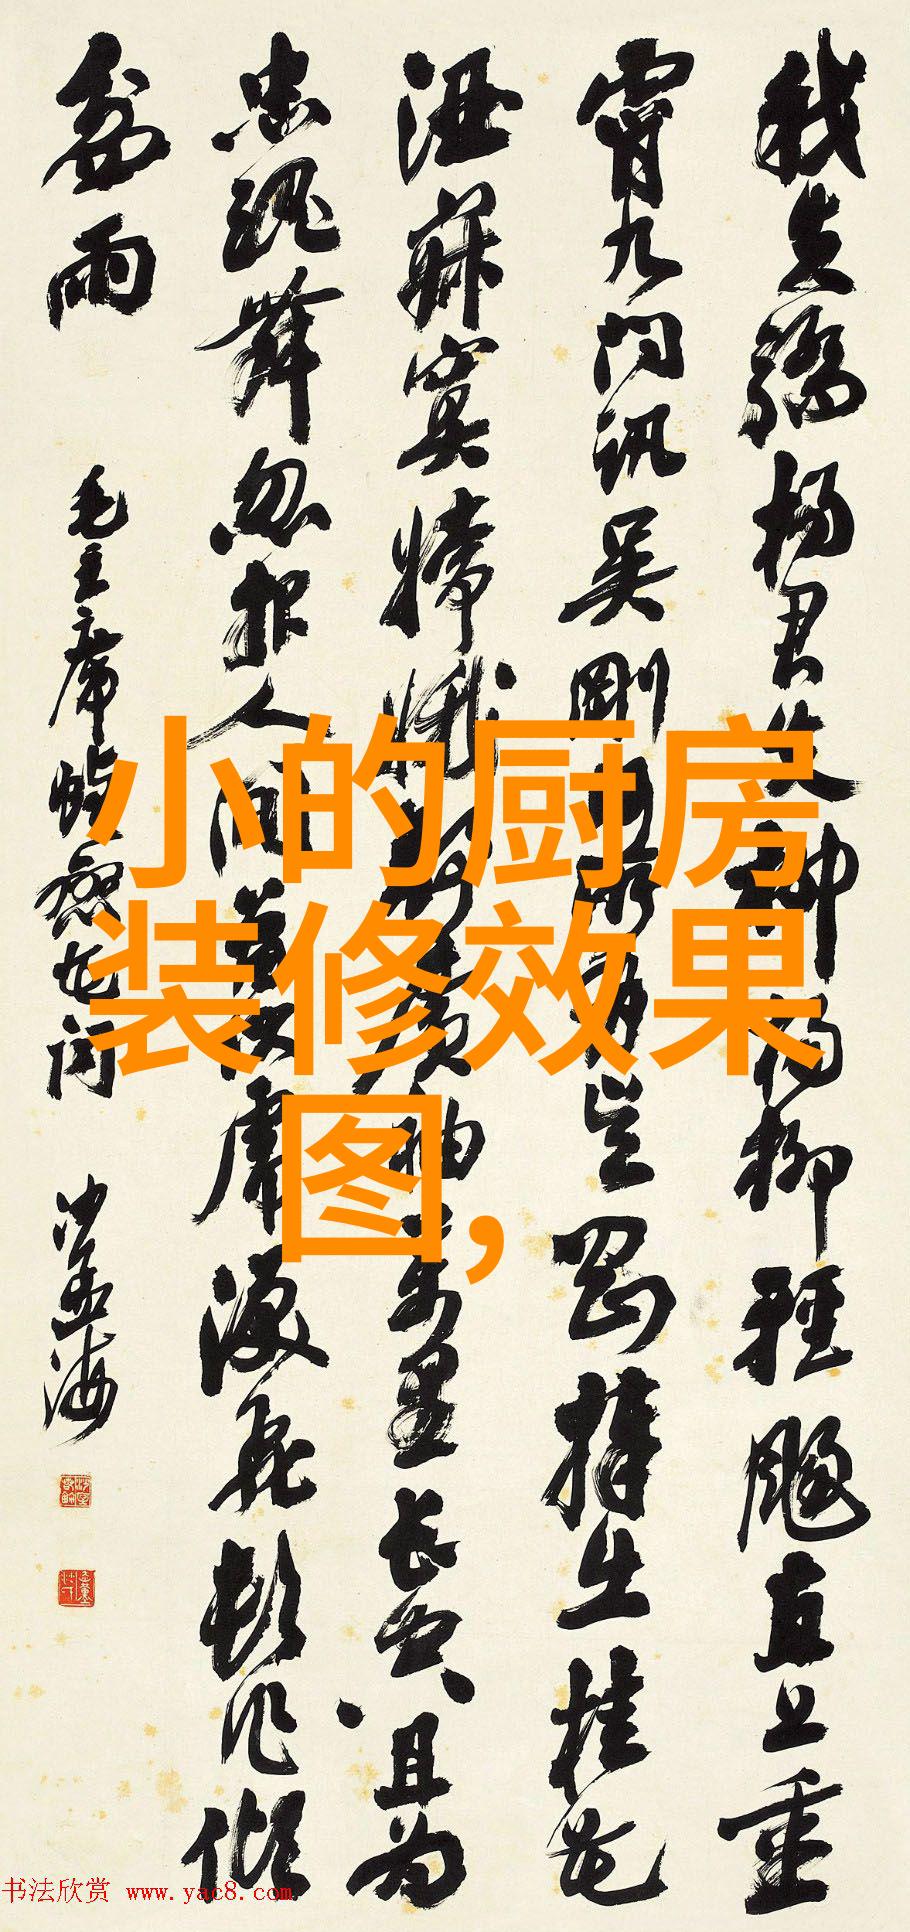 小的厨房
装修效果
图,
我失驕杨君失柳杨柳轻飏直上重
霄九问讯吴剛何所有吴剛捧出桂花
酒寂寞嫦娥舒广袖万里长空且为
忠魂舞忽报人间曾伏虎泪飛顿作倾
盆雨
毛主席蝶恋花词
沙孟海
书法欣赏 www.yac8.com